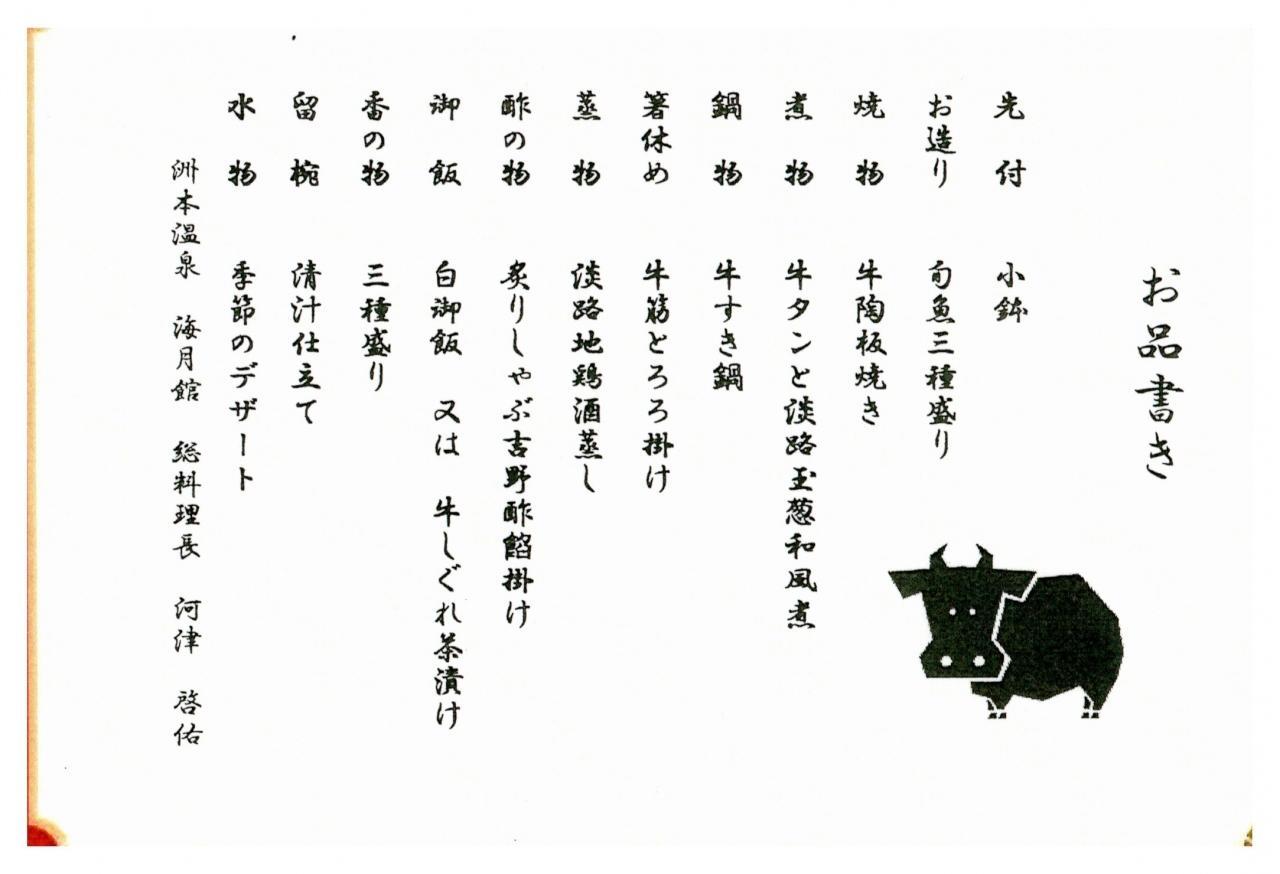 お品書き
先付 小鉢
お造り 旬魚三種盛り
焼物 牛陶板焼き
煮物 牛タンと淡路玉葱和風煮
鍋物 牛すき鍋
箸休め 牛筋とろろ掛け
蒸物 淡路地鶏酒蒸し
酢の物 炙りしゃぶ吉野酢餡掛け
御飯 白御飯 又は 牛しぐれ茶漬け
香の物 三種盛り
留椀 清汁仕立て
水物 季節のデザート
洲本温泉 海月館 総料理長 河津 啓佑